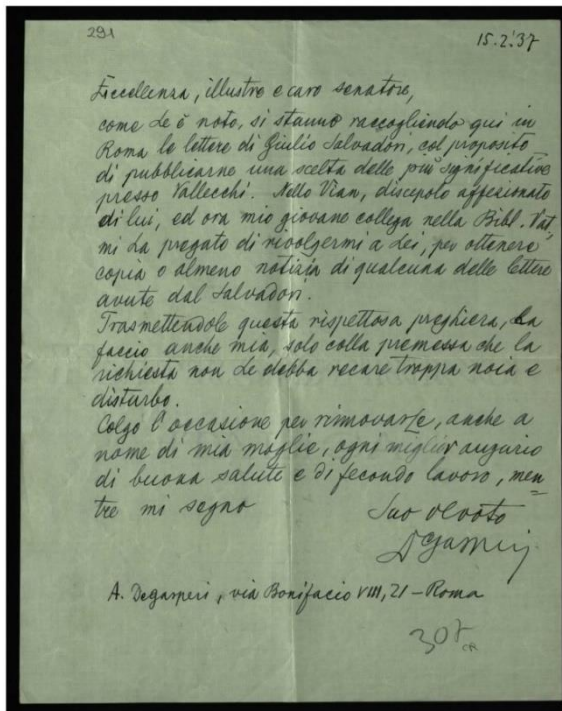 291
15.2.37
Eccellenza, illustre e caro senatore,
come Le è noto, si stanno raccogliendo qui in
Roma le lettere di Giulio Salvadori, col proposito
di pubblicarne una scelta delle più significative
presso Vallecchi. Nello Vian, discepolo affezionato
di lui, ed ora mio giovane collega nella Bibl. Vat.
mi ha pregato di rivolgermi a Lei, per ottenere
copia o almeno notizia di qualcuna delle lettere
avute dal Salvadori.
Trasmettendole questa rispettosa preghiera, la
faccio anche mia, solo colla premessa che la
richiesta non Le debba recare troppa noia e
disturbo.
Colgo l'occasione per rinnovarLe, anche a
nome di mia moglie, ogni miglior augurio
di buona salute e di fecondo lavoro, men=
tre mi segno
Suo devoto
Degasperi
A. Degasperi, via Bonifacio VIII, 21 - Roma
307